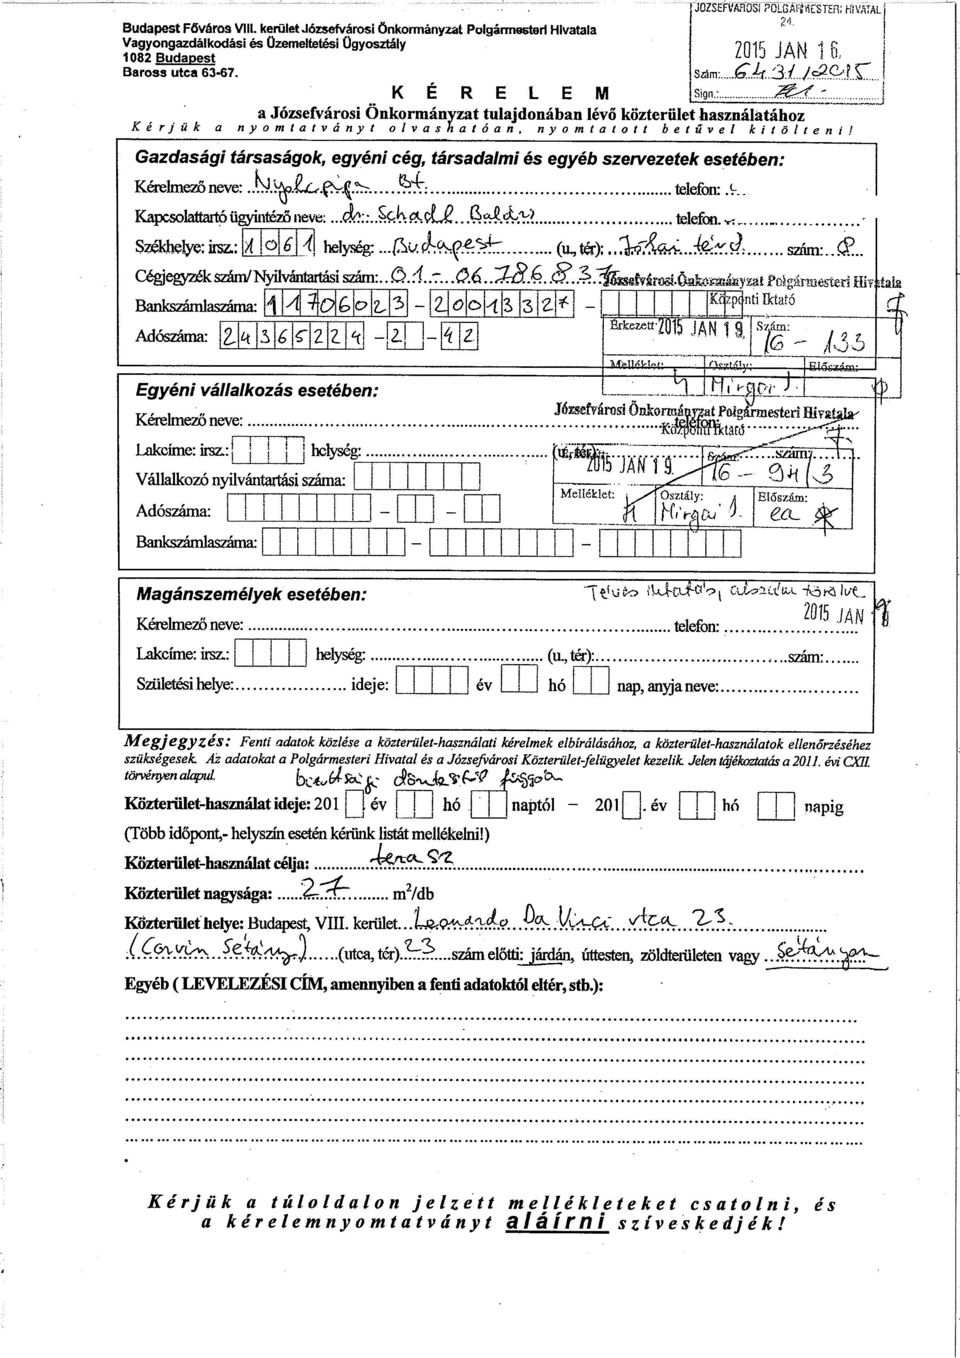 JÓZSEFVÁROSI POLGÁRMESTERI HIVATAL
24.
2015 JAN 16.
Szám: 6431/2015
Sign.:
Budapest Főváros VIII. kerület Józsefvárosi Önkormányzat Polgármesteri Hivatala
Vagyongazdálkodási és Üzemeltetési Ügyosztály
1082 Budapest
Baross utca 63-67.
K É R E L E M
a Józsefvárosi Önkormányzat tulajdonában lévő közterület használatához
Kérjük a nyomtatványt olvashatóan, nyomtatott betűvel kitölteni!
Gazdasági társaságok, egyéni cég, társadalmi és egyéb szervezetek esetében:
Kérelmező neve: Nyolcpipa Bt. telefon:
Kapcsolattartó ügyintéző neve: dr. Schadl Balázs telefon.
Székhelye: irsz.: 1061 helység: Budapest (u., tér): Jókai tér szám: 8.
Cégjegyzék szám/ Nyilvántartási szám: 01-06-786837
Józsefvárosi Önkormányzat Polgármesteri Hivatala
Központi Iktató
Bankszámlaszáma: 11706023 - 2001332* -
Érkezett: 2015 JAN 19. Szám: 16 - 133
Adószáma: 24365224 - 2 - 42
Melléklet: 4 Osztály: Mirgai J. Előszám:
Egyéni vállalkozás esetében:
Józsefvárosi Önkormányzat Polgármesteri Hivatala
Központi Iktató
Kérelmező neve: telefon:
Lakcíme: irsz.: helység: (u., tér): szám:
2015 JAN 19. 16 - 94/3
Vállalkozó nyilvántartási száma:
Melléklet: Osztály: Mirgai J. Előszám: ea
Adószáma: - -
Bankszámlaszáma: - -
Magánszemélyek esetében:
Téves iktatás, alszám törölve
2015 JAN
Kérelmező neve: telefon:
Lakcíme: irsz.: helység: (u., tér): szám:
Születési helye: ideje: év hó nap, anyja neve:
Megjegyzés: Fenti adatok közlése a közterület-használati kérelmek elbírálásához, a közterület-használatok ellenőrzéséhez
szükségesek. Az adatokat a Polgármesteri Hivatal és a Józsefvárosi Közterület-felügyelet kezelik. Jelen tájékoztatás a 2011. évi CXII.
törvényen alapul.
bizottsági döntéstől függően
Közterület-használat ideje: 201 év hó naptól – 201 . év hó napig
(Több időpont,- helyszín esetén kérünk listát mellékelni!)
Közterület-használat célja: terasz
Közterület nagysága: 27 m²/db
Közterület helye: Budapest, VIII. kerület Leonardo Da Vinci utca 23.
(Corvin Sétány) (utca, tér) 23 szám előtti: járdán, úttesten, zöldterületen vagy Sétányon
Egyéb ( LEVELEZÉSI CÍM, amennyiben a fenti adatoktól eltér, stb.):
Kérjük a túloldalon jelzett mellékleteket csatolni, és
a kérelemnyomtatványt aláírni szíveskedjék!